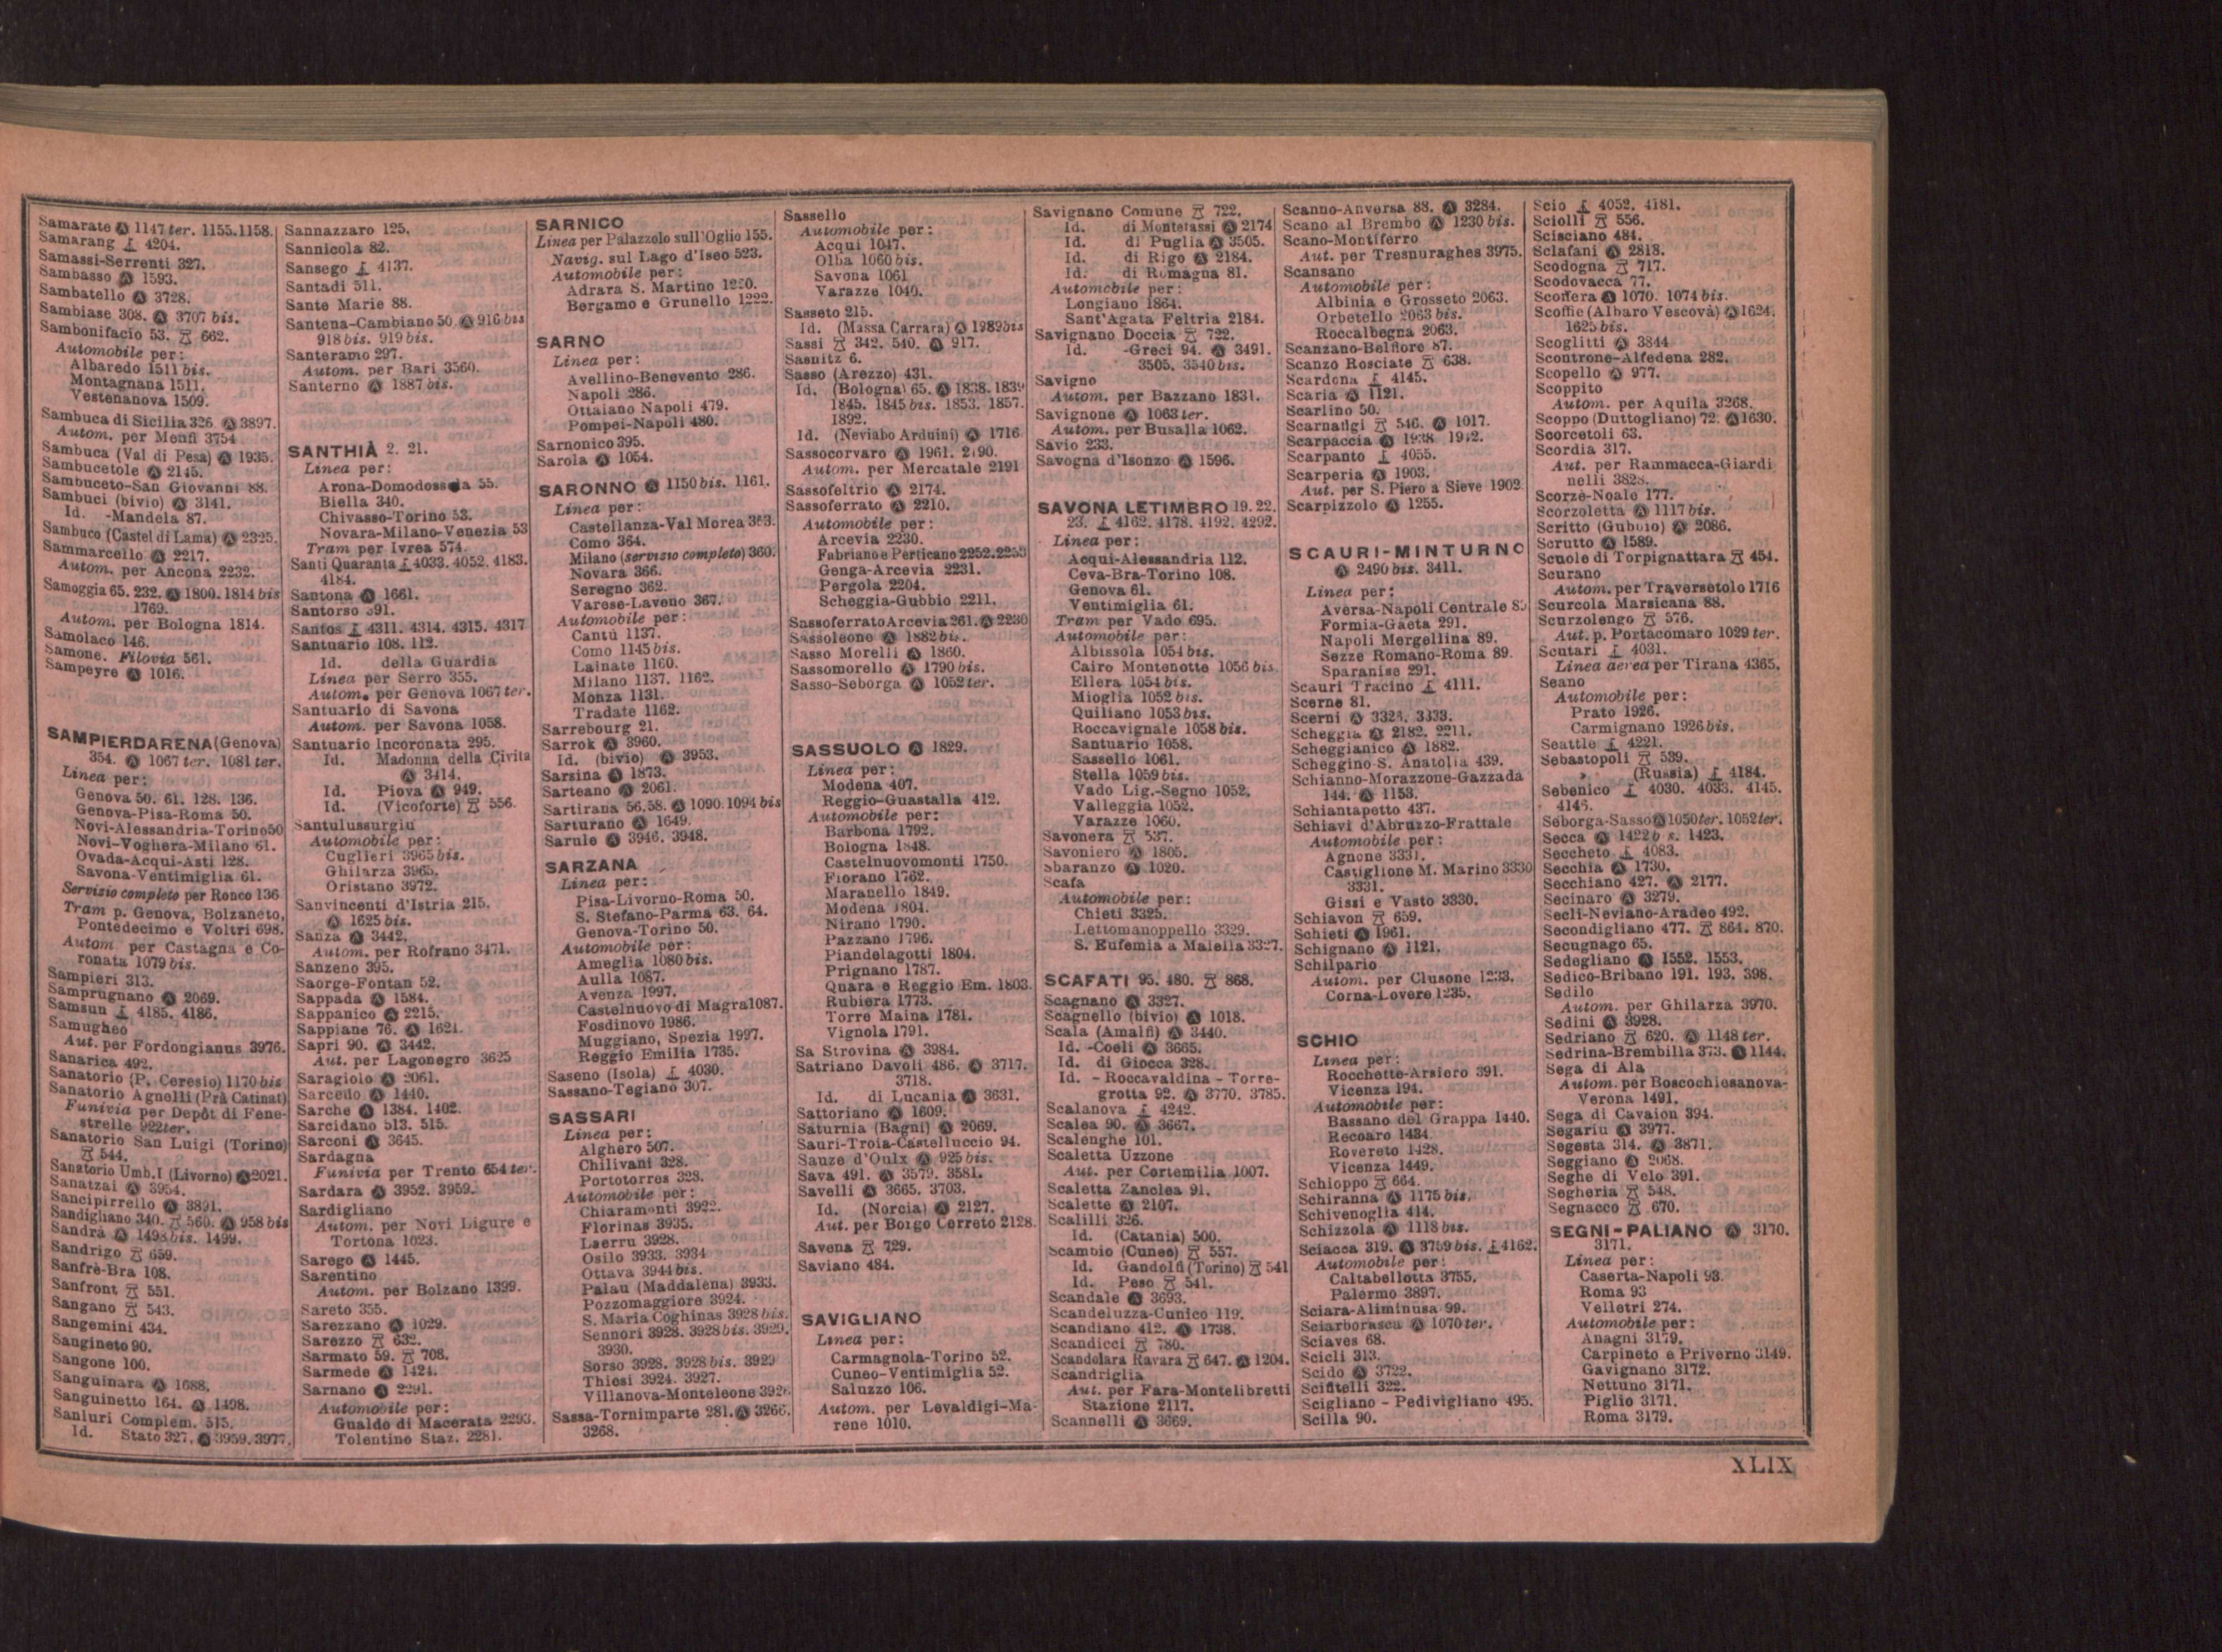 Samarate Ⓐ 1147 ter. 1155. 1158.
Samarang ⚓ 4204.
Samassi-Serrenti 327.
Sambasso Ⓐ 1593.
Sambatello Ⓐ 3728.
Sambiase 308. Ⓐ 3707 bis.
Sambonifacio 53. 662.
Automobile per:
Albaredo 1511 bis.
Montagnana 1511.
Vestenanova 1509.
Sambuca di Sicilia 326. Ⓐ 3897.
Autom. per Menfi 3754
Sambuca (Val di Pesa) Ⓐ 1935.
Sambucetole Ⓐ 2145.
Sambuceto-San Giovanni 88.
Sambuci (bivio) Ⓐ 3141.
Id. -Mandela 87.
Sambuco (Castel di Lama) Ⓐ 2325.
Sammarcello Ⓐ 2217.
Autom. per Ancona 2232.
Samoggia 65. 232. Ⓐ 1800. 1814 bis
1769.
Autom. per Bologna 1814.
Samolaco 146.
Samone. Filovia 561.
Sampeyre Ⓐ 1016.
SAMPIERDARENA (Genova)
354. Ⓐ 1067 ter. 1081 ter.
Linea per:
Genova 50. 61. 128. 136.
Genova-Pisa-Roma 50.
Novi-Alessandria-Torino 50
Novi-Voghera-Milano 61.
Ovada-Acqui-Asti 128.
Savona-Ventimiglia 61.
Servizio completo per Ronco 136
Tram p. Genova, Bolzaneto,
Pontedecimo e Voltri 698.
Autom per Castagna e Co-
ronata 1079 bis.
Sampieri 313.
Samprugnano Ⓐ 2069.
Samsun ⚓ 4185. 4186.
Samugheo
Aut. per Fordongianus 3976.
Sanarica 492.
Sanatorio (P. Ceresio) 1170 bis
Sanatorio Agnelli (Prà Catinat)
Funivia per Depôt di Fene-
strelle 922ter.
Sanatorio San Luigi (Torino)
544.
Sanatorio Umb. I (Livorno) Ⓐ 2021.
Sanatzai Ⓐ 3954.
Sancipirrello Ⓐ 3891.
Sandigliano 340. 560. Ⓐ 958 bis
Sandrà Ⓐ 1498 bis. 1499.
Sandrigo 659.
Sanfrè-Bra 108.
Sanfront 551.
Sangano 543.
Sangemini 434.
Sangineto 90.
Sangone 100.
Sanguinara Ⓐ 1688.
Sanguinetto 164. Ⓐ 1498.
Sanluri Complem. 515.
Id. Stato 327. Ⓐ 3959. 3977.
Sannazzaro 125.
Sannicola 82.
Sansego ⚓ 4137.
Santadi 511.
Sante Marie 88.
Santena-Cambiano 50 Ⓐ 916 bis
918 bis. 919 bis.
Santeramo 297.
Autom. per Bari 3560.
Santerno Ⓐ 1887 bis.
SANTHIÀ 2. 21.
Linea per:
Arona-Domodossola 55.
Biella 340.
Chivasso-Torino 53.
Novara-Milano-Venezia 53
Tram per Ivrea 574.
Santi Quaranta ⚓ 4033. 4052. 4183.
4184.
Santona Ⓐ 1661.
Santorso 391.
Santos ⚓ 4311. 4314. 4315. 4317
Santuario 108. 112.
Id. della Guardia
Linea per Serro 355.
Autom. per Genova 1067 ter.
Santuario di Savona
Autom. per Savona 1058.
Santuario Incoronata 295.
Id. Madonna della Civita
Ⓐ 3414.
Id. Piova Ⓐ 949.
Id. (Vicoforte) 556.
Santulussurgiu
Automobile per:
Cuglieri 3965 bis.
Ghilarza 3965.
Oristano 3972.
Sanvincenti d'Istria 215.
Ⓐ 1625 bis.
Sanza Ⓐ 3442.
Autom. per Rofrano 3471.
Sanzeno 395.
Saorge-Fontan 52.
Sappada Ⓐ 1584.
Sappanico Ⓐ 2215.
Sappiane 76. Ⓐ 1621.
Sapri 90. Ⓐ 3442.
Aut. per Lagonegro 3625
Saragiolo Ⓐ 2061.
Sarcedo Ⓐ 1440.
Sarche Ⓐ 1384. 1402.
Sarcidano 513. 515.
Sarconi Ⓐ 3645.
Sardagna
Funivia per Trento 654 ter.
Sardara Ⓐ 3952. 3959.
Sardigliano
Autom. per Novi Ligure e
Tortona 1023.
Sarego Ⓐ 1445.
Sarentino
Autom. per Bolzano 1399.
Sareto 355.
Sarezzano Ⓐ 1029.
Sarezzo 632.
Sarmato 59. 708.
Sarmede Ⓐ 1424.
Sarnano Ⓐ 2291.
Automobile per:
Gualdo di Macerata 2293.
Tolentino Staz. 2281.
SARNICO
Linea per Palazzolo sull'Oglio 155.
Navig. sul Lago d'Iseo 523.
Automobile per:
Adrara S. Martino
Bergamo e Grunello 1222.
SARNO
Linea per:
Avellino-Benevento 286.
Napoli 286.
Ottaiano Napoli 479.
Pompei-Napoli 480.
Sarnonico 395.
Sarola Ⓐ 1054.
SARONNO Ⓐ 1150 bis. 1161.
Linea per:
Castellanza-Val Morea 363.
Como 364.
Milano (servizio completo) 360.
Novara 366.
Seregno 362.
Varese-Laveno 367.
Automobile per:
Cantù 1137.
Como 1145 bis.
Lainate 1160.
Milano 1137. 1162.
Monza 1131.
Tradate 1162.
Sarrebourg 21.
Sarrok Ⓐ 3960.
Id. (bivio) Ⓐ 3953.
Sarsina Ⓐ 1873.
Sarteano Ⓐ 2061.
Sartirana 56. 58. Ⓐ 1090. 1094 bis
Sarturano Ⓐ 1649.
Sarule Ⓐ 3946. 3948.
SARZANA
Linea per:
Pisa-Livorno-Roma 50.
S. Stefano-Parma 63. 64.
Genova-Torino 50.
Automobile per:
Ameglia 1080 bis.
Aulla 1087.
Avenza 1997.
Castelnuovo di Magra 1087.
Fosdinovo 1986.
Muggiano, Spezia 1997.
Reggio Emilia 1735.
Saseno (Isola) ⚓ 4030.
Sassano-Tegiano 307.
SASSARI
Linea per:
Alghero 507.
Chilivani 328.
Portotorres 328.
Automobile per:
Chiaramonti 3922.
Florinas 3935.
Laerru 3928.
Osilo 3933. 3934
Ottava 3944 bis.
Palau (Maddalena) 3933.
Pozzomaggiore 3924.
S. Maria Coghinas 3928 bis.
Sennori 3928. 3928 bis. 3929.
3930.
Sorso 3928. 3928 bis. 3929
Thiesi 3924. 3927.
Villanova-Monteleone
Sassa-Tornimparte 281. Ⓐ 3266.
3268.
Sassello
Automobile per:
Acqui 1047.
Olba 1060 bis.
Savona 1061
Varazze 1040.
Sasseto 215.
Id. (Massa Carrara) Ⓐ 1989 bis
Sassi 342. 540. Ⓐ 917.
Sasnitz 6.
Sasso (Arezzo) 431.
Id. (Bologna) 65. Ⓐ 1838. 1839
1845. 1845 bis. 1853. 1857.
1892.
Id. (Neviano Arduini) Ⓐ 1716
Sassocorvaro Ⓐ 1961. 2190.
Autom. per Mercatale 2191
Sassofeltrio Ⓐ 2174.
Sassoferrato Ⓐ 2210.
Automobile per:
Arcevia 2230.
Fabriano e Perticano 2252. 2253
Genga-Arcevia 2231.
Pergola 2204.
Scheggia-Gubbio 2211.
Sassoferrato Arcevia 261. Ⓐ 2230
Sassoleone Ⓐ 1882 bis.
Sasso Morelli Ⓐ 1860.
Sassomorello Ⓐ 1790 bis.
Sasso-Seborga Ⓐ 1052 ter.
SASSUOLO Ⓐ 1829.
Linea per:
Modena 407.
Reggio-Guastalla 412.
Automobile per:
Barbona 1792.
Bologna 1848.
Castelnuovomonti 1750.
Fiorano 1762.
Maranello 1849.
Modena 1804.
Nirano 1790.
Pazzano 1796.
Piandelagotti 1804.
Prignano 1787.
Quara e Reggio Em. 1803.
Rubiera 1773.
Torre Maina 1781.
Vignola 1791.
Sa Strovina Ⓐ 3984.
Satriano Davoli 486. Ⓐ 3717.
3718.
Id. di Lucania Ⓐ 3631.
Sattoriano Ⓐ 1609.
Saturnia (Bagni) Ⓐ 2069.
Sauri-Troia-Castelluccio 94.
Sauze d'Oulx Ⓐ 925 bis.
Sava 491. Ⓐ 3579. 3581.
Savelli Ⓐ 3665. 3703.
Id. (Norcia) Ⓐ 2127.
Aut. per Borgo Cerreto 2128.
Savena 729.
Saviano 484.
SAVIGLIANO
Linea per:
Carmagnola-Torino 52.
Cuneo-Ventimiglia 52.
Saluzzo 106.
Autom. per Levaldigi-Ma-
rene 1010.
Savignano Comune 722.
Id. di Montetassi Ⓐ 2174
Id. di Puglia Ⓐ 3505.
Id. di Rigo Ⓐ 2184.
Id. di Romagna 81.
Automobile per:
Longiano 1864.
Sant'Agata Feltria 2184.
Savignano Doccia 722.
Id. -Greci 94. Ⓐ 3491.
3505. 3540 bis.
Savigno
Autom. per Bazzano 1831.
Savignone Ⓐ 1063 ter.
Autom. per Busalla 1062.
Savio 233.
Savogna d'Isonzo Ⓐ 1596.
SAVONA LETIMBRO 19. 22.
23. ⚓ 4162. 4178. 4192. 4292.
Linea per:
Acqui-Alessandria 112.
Ceva-Bra-Torino 108.
Genova 61.
Ventimiglia 61.
Tram per Vado 695.
Automobile per:
Albissola 1054 bis.
Cairo Montenotte 1056 bis.
Ellera 1054 bis.
Mioglia 1052 bis.
Quiliano 1053 bis.
Roccavignale 1058 bis.
Santuario 1058.
Sassello 1061.
Stella 1059 bis.
Vado Lig.-Segno 1052.
Valleggia 1052.
Varazze 1060.
Savonera 537.
Savoniero Ⓐ 1805.
Sbaranzo Ⓐ 1020.
Scafa
Automobile per:
Chieti 3325.
Lettomanoppello 3329.
S. Eufemia a Maiella 3327.
SCAFATI 95. 480. 868.
Scagnano Ⓐ 3327.
Scagnello (bivio) Ⓐ 1018.
Scala (Amalfi) Ⓐ 3440.
Id. -Coeli Ⓐ 3665.
Id. di Giocca 328.
Id. - Roccavaldina - Torre-
grotta 92. Ⓐ 3770. 3785.
Scalanova ⚓ 4242.
Scalea 90. Ⓐ 3667.
Scalenghe 101.
Scaletta Uzzone
Aut. per Cortemilia 1007.
Scaletta Zanclea 91.
Scalette Ⓐ 2107.
Scalilli 326.
Id. (Catania) 500.
Scambio (Cuneo) 557.
Id. Gandolfi (Torino) 541
Id. Peso 541.
Scandale Ⓐ 3693.
Scandeluzza-Cunico 119.
Scandiano 412. Ⓐ 1738.
Scandicci 780.
Scandolara Ravara 647. Ⓐ 1204.
Scandriglia
Aut. per Fara-Montelibretti
Stazione 2117.
Scannelli Ⓐ 3669.
Scanno-Anversa 88. Ⓐ 3284.
Scano al Brembo Ⓐ 1230 bis.
Scano-Montiferro
Aut. per Tresnuraghes 3975.
Scansano
Automobile per:
Albinia e Grosseto 2063.
Orbetello 2063 bis.
Roccalbegna 2063.
Scanzano-Belfiore 87.
Scanzo Rosciate 638.
Scardona ⚓ 4145.
Scaria Ⓐ 1121.
Scarlino 50.
Scarnafigi 546. Ⓐ 1017.
Scarpaccia Ⓐ 1938 1942.
Scarpanto ⚓ 4055.
Scarperia Ⓐ 1903.
Aut. per S. Piero a Sieve 1902
Scarpizzolo Ⓐ 1255.
SCAURI-MINTURNO
Ⓐ 2490 bis. 3411.
Linea per:
Aversa-Napoli Centrale
Formia-Gaeta 291.
Napoli Mergellina 89.
Sezze Romano-Roma 89.
Sparanise 291.
Scauri Tracino ⚓ 4111.
Scerne 81.
Scerni Ⓐ 3323. 3333.
Scheggia Ⓐ 2182. 2211.
Scheggianico Ⓐ 1882.
Scheggino-S. Anatolia 439.
Schianno-Morazzone-Gazzada
144. Ⓐ 1153.
Schiantapetto 437.
Schiavi d'Abruzzo-Frattale
Automobile per:
Agnone 3331.
Castiglione M. Marino 3330
3331.
Gissi e Vasto 3330.
Schiavon 659.
Schieti Ⓐ 1961.
Schignano Ⓐ 1121.
Schilpario
Autom. per Clusone 1233.
Corna-Lovere 1235.
SCHIO
Linea per:
Rocchette-Arsiero 391.
Vicenza 194.
Automobile per:
Bassano del Grappa 1440.
Recoaro 1434.
Rovereto 1428.
Vicenza 1449.
Schioppo 664.
Schiranna Ⓐ 1175 bis.
Schivenoglia 414.
Schizzola Ⓐ 1118 bis.
Sciacca 319. Ⓐ 3759 bis. ⚓ 4162.
Automobile per:
Caltabellotta 3755.
Palermo 3897.
Sciara-Aliminusa 99.
Sciarborasca Ⓐ 1070 ter.
Sciaves 68.
Scicli 313.
Scido Ⓐ 3722.
Scifitelli 322.
Scigliano - Pedivigliano 495.
Scilla 90.
Scio ⚓ 4052. 4181.
Sciolli 556.
Scisciano 484.
Sclafani Ⓐ 2818.
Scodogna 717.
Scodovacca 77.
Scoffera Ⓐ 1070. 1074 bis.
Scoffie (Albaro Vescovà) Ⓐ 1624.
1625 bis.
Scoglitti Ⓐ 3844
Scontrone-Alfedena 282.
Scopello Ⓐ 977.
Scoppito
Autom. per Aquila 3268.
Scoppo (Duttogliano) 72. Ⓐ 1630.
Scorcetoli 63.
Scordia 317.
Aut. per Rammacca-Giardi
nelli 3828.
Scorzè-Noale 177.
Scorzoletta Ⓐ 1117 bis.
Scritto (Gubbio) Ⓐ 2086.
Scrutto Ⓐ 1589.
Scuole di Torpignattara 454.
Scurano
Autom. per Traversetolo 1716
Scurcola Marsicana 88.
Scurzolengo 576.
Aut. p. Portacomaro 1029 ter.
Scutari ⚓ 4031.
Linea aerea per Tirana 4365.
Seano
Automobile per:
Prato 1926.
Carmignano 1926 bis.
Seattle ⚓ 4221.
Sebastopoli 539.
» (Russia) ⚓ 4184.
Sebenico ⚓ 4030. 4033. 4145.
4146.
Seborga-Sasso Ⓐ 1050 ter. 1052 ter.
Secca Ⓐ 1422 b s. 1423.
Seccheto ⚓ 4083.
Secchia Ⓐ 1730.
Secchiano 427. Ⓐ 2177.
Secinaro Ⓐ 3279.
Secli-Neviano-Aradeo 492.
Secondigliano 477. 864. 870.
Secugnago 65.
Sedegliano Ⓐ 1552. 1553.
Sedico-Bribano 191. 193. 398.
Sedilo
Autom. per Ghilarza 3970.
Sedini Ⓐ 3928.
Sedriano 620. Ⓐ 1148 ter.
Sedrina-Brembilla 373. Ⓐ 1144.
Sega di Ala
Autom. per Boscochiesanova-
Verona 1491.
Sega di Cavaion 394.
Segariu Ⓐ 3977.
Segesta 314. Ⓐ 3871.
Seggiano Ⓐ 2068.
Seghe di Velo 391.
Segheria 548.
Segnacco 670.
SEGNI-PALIANO Ⓐ 3170.
3171.
Linea per:
Caserta-Napoli 93.
Roma 93
Velletri 274.
Automobile per:
Anagni 3179.
Carpineto e Priverno 3149.
Gavignano 3172.
Nettuno 3171.
Piglio 3171.
Roma 3179.
XLIX